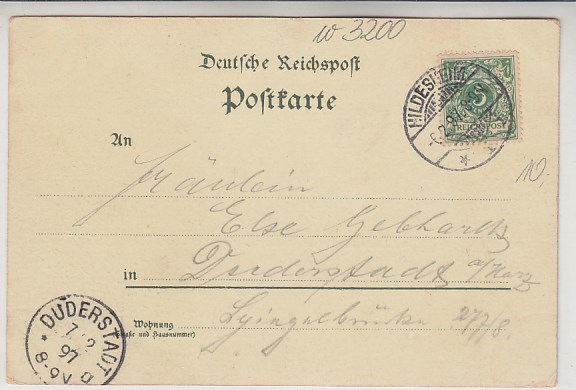 w 3200
Deutsche Reichspost
Postkarte
HILDESHEIM
5
REICHSPOST
An
10,-
Fräulein
Else Gebhardt
in Duderstadt a/Harz
Wohnung
(Straße und Hausnummer)
Spiegelbrücke 277/8.
* DUDERSTADT
7/2
97